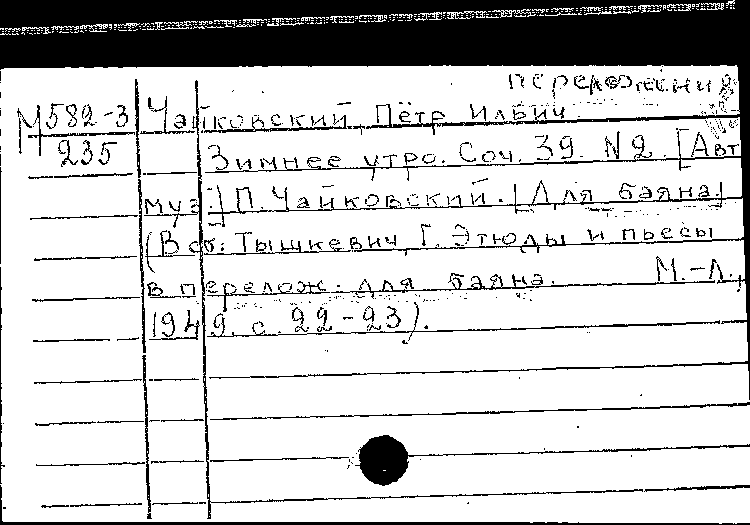 переложения
М582-3
235
Чайковский, Пётр Ильич.
Зимнее утро. Соч. 39. N 2. [Авт
муз.] П. Чайковский. [Для баяна]
(В сб: Тышкевич, Г. Этюды и пьесы
в перелож. для баяна. М.-Л.,
1949. с. 22-23).